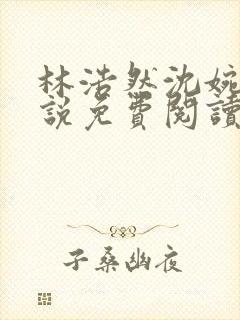 林浩然沈婉
說免費閱讀
子桑幽夜